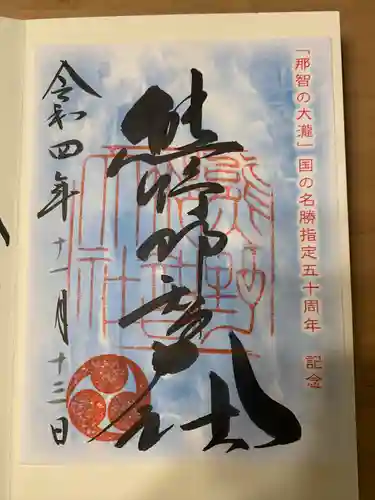 「那智の大瀧」国の名勝指定五十周年　記念
熊野那智大社
令和四年十一月十三日